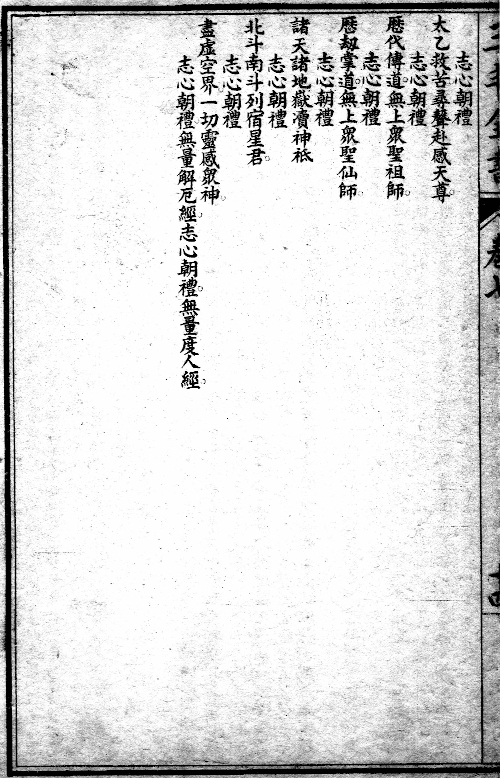 志心朝禮
太乙救苦尋聲赴感天尊。
志心朝禮
歷代傳道無上眾聖祖師。
志心朝禮
歷劫掌道無上眾聖仙師。
志心朝禮
諸天諸地嶽瀆神祗
志心朝禮
北斗南斗列宿星君。
志心朝禮
盡虛空界一切靈感眾神。
志心朝禮無量解厄經。志心朝禮。無量度人經。
卷七
十四